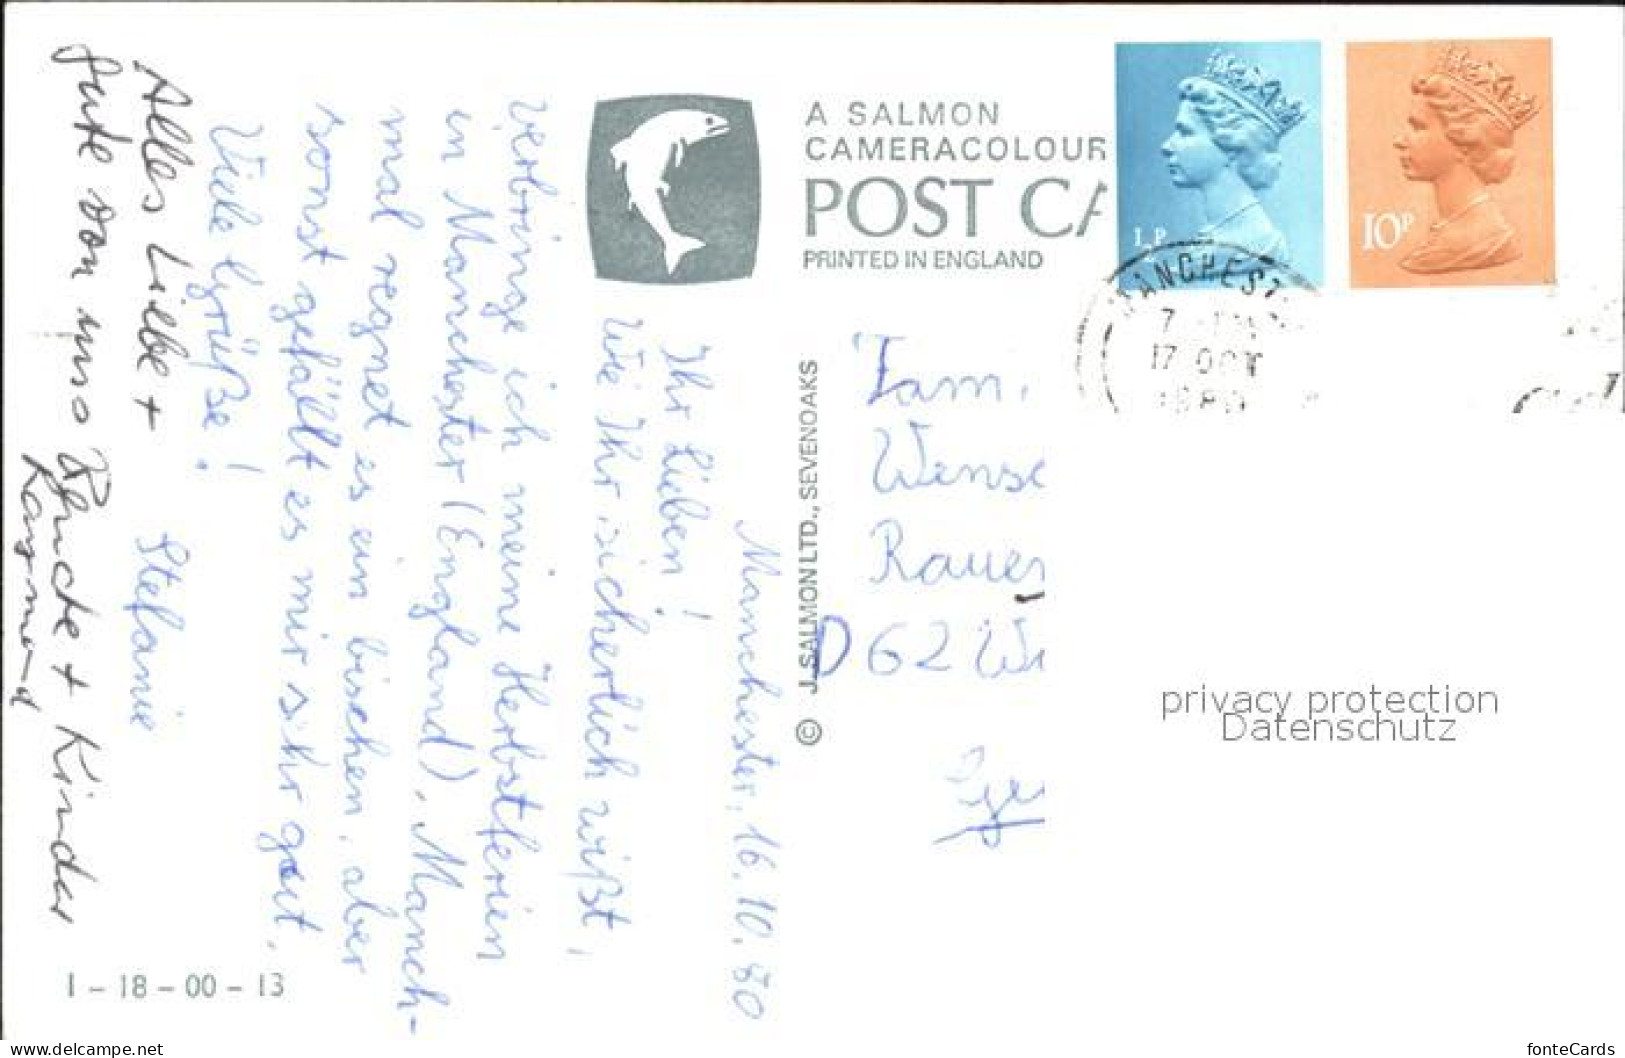 Manchester, 16.10.80
Ihr Lieben!
Wie Ihr sicherlich wißt,
verbringe ich meine Herbstferien
in Manchester (England). Manch-
mal regnet es ein bischen, aber
sonst gefällt es mir sehr gut.
Viele Grüße!
Stefanie
Alles Liebe +
gute von uns
+ Kinder
A SALMON
CAMERACOLOUR
POST CA
PRINTED IN ENGLAND
© J. SALMON LTD., SEVENOAKS
½P
10P
MANCHEST
17 OCT
1980
Fam.
Wense
Rauen
D 62 Wi
privacy protection
Datenschutz
1-18-00-13
www.delcampe.net
fonteCards